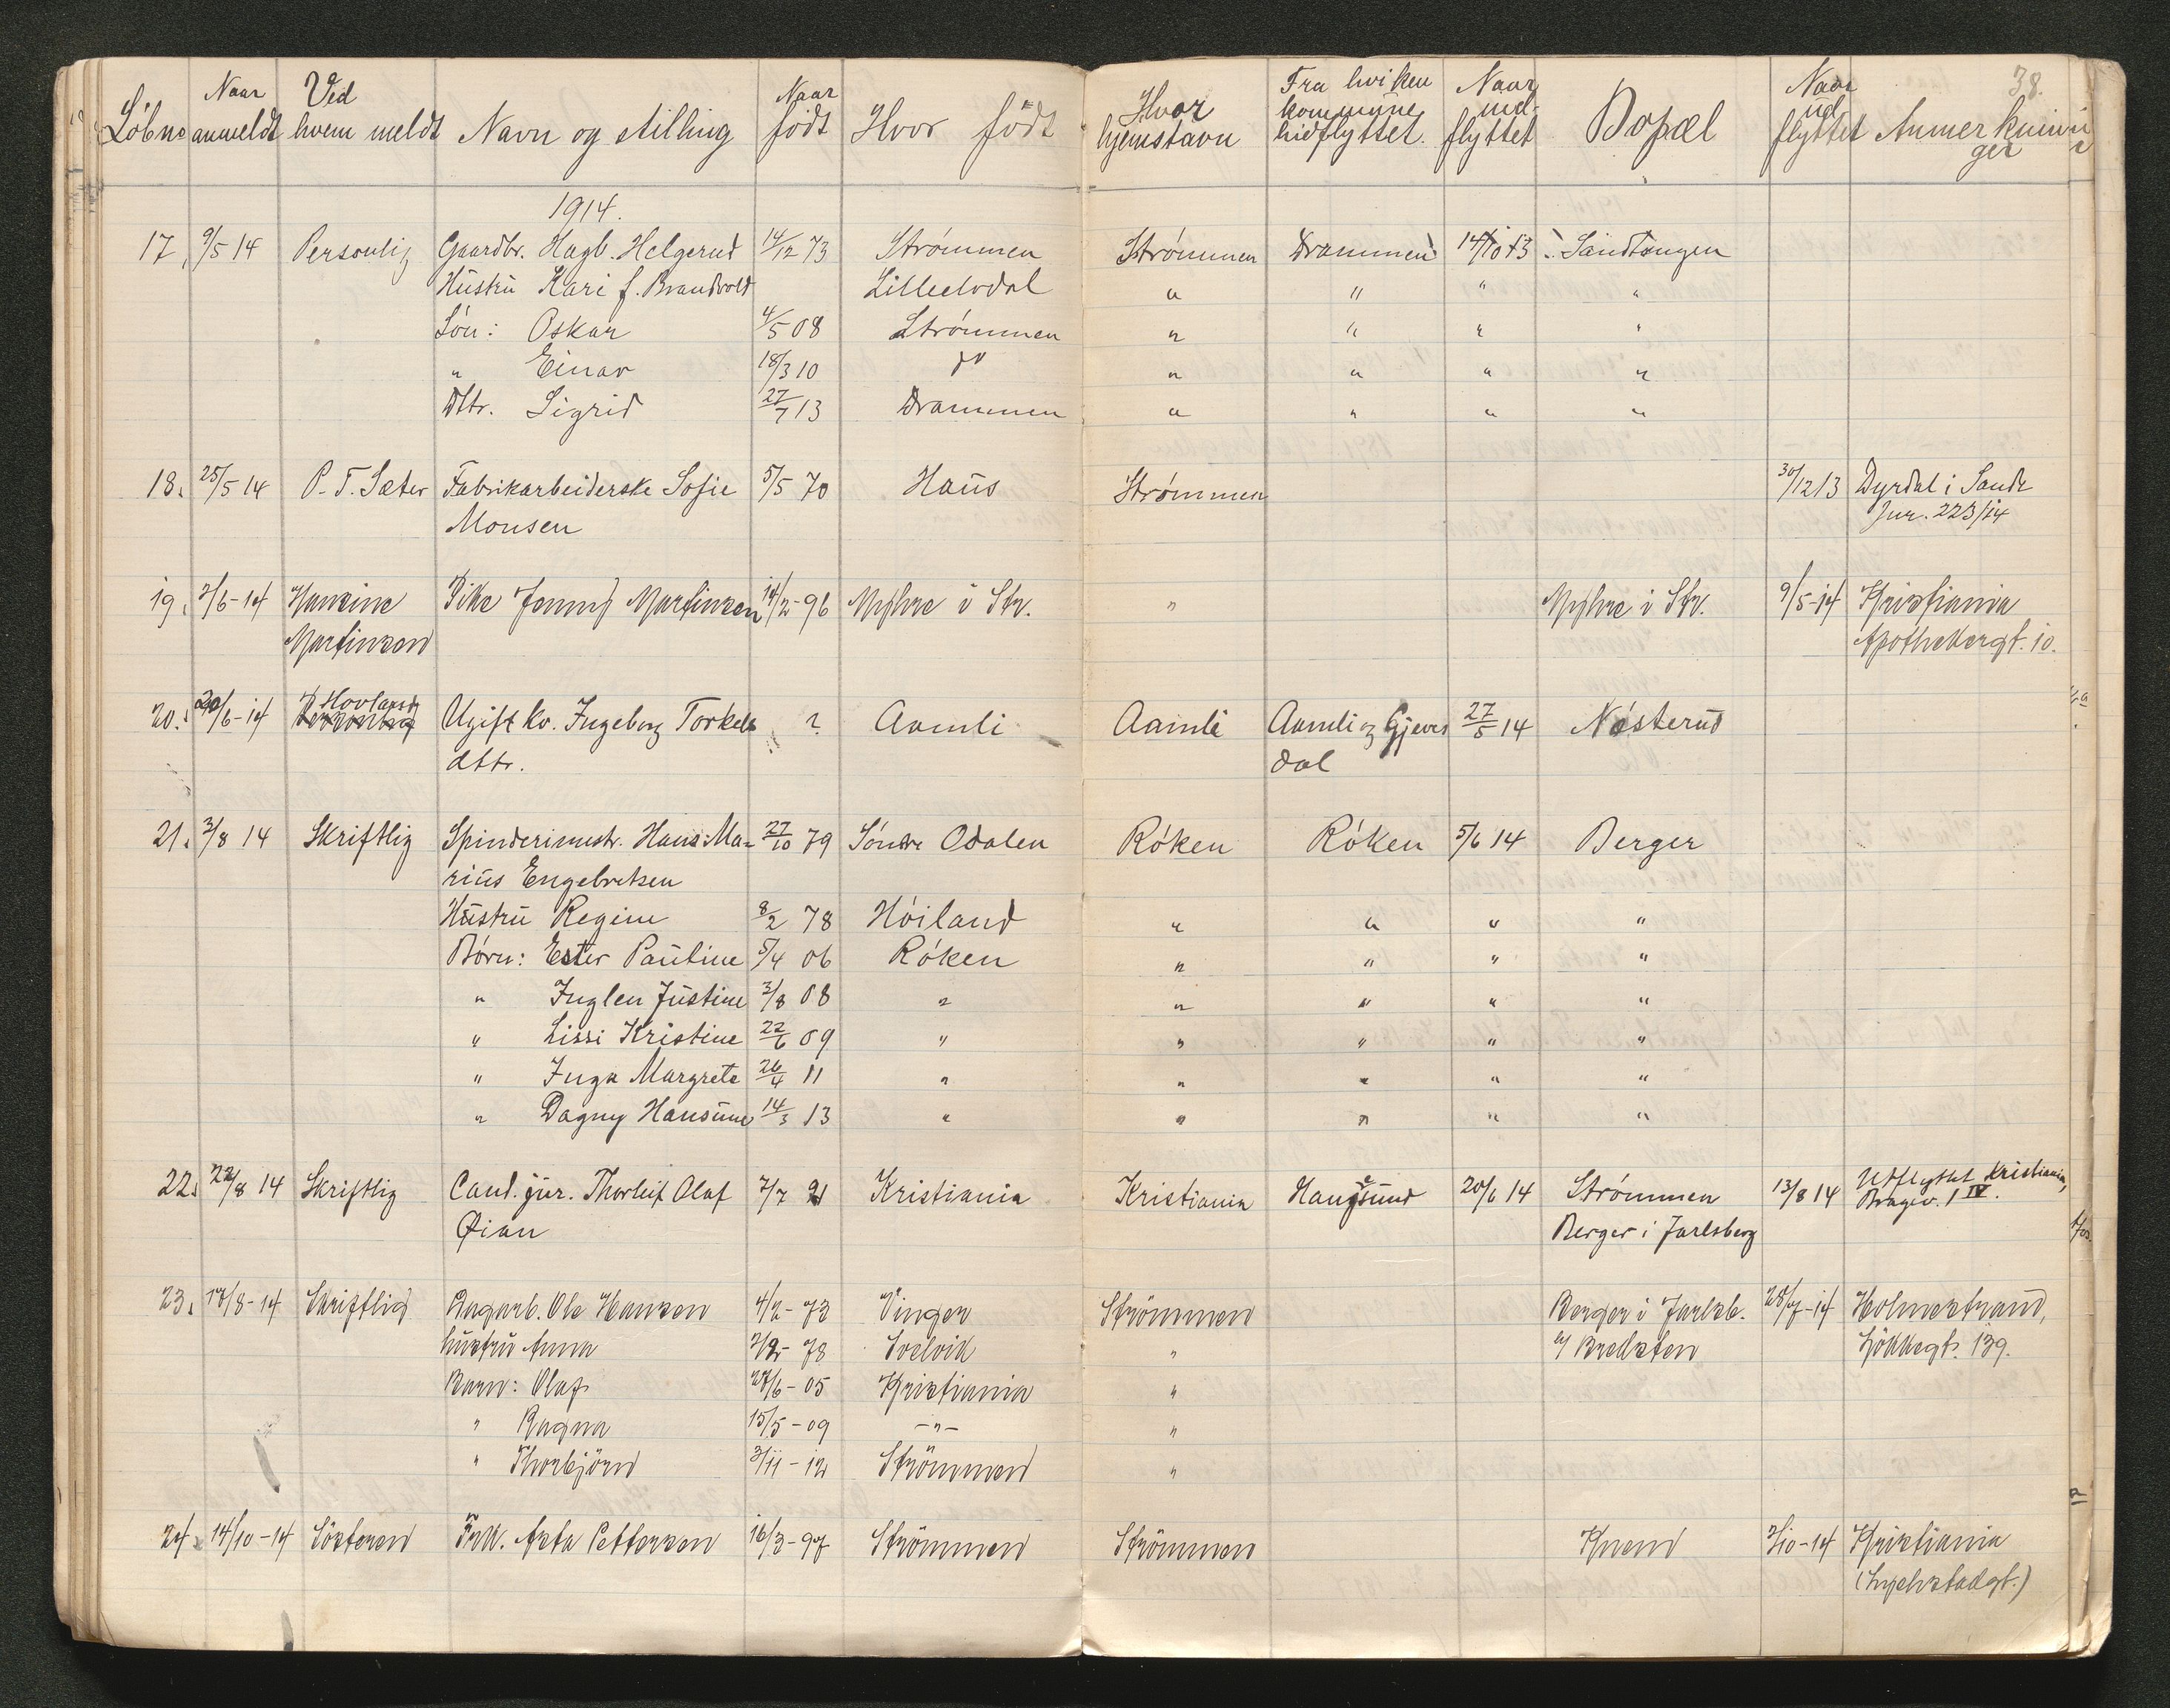 38.
Löbno Naar anmeldt Ved hvem meldt Navn og stilling Naar födt Hvor födt Hvor hjemstavn Fra hvilken kommune hidflyttet. Naar ind-flyttet Bopæl Naar ud flyttet Anmerkninger
1914.
17, 9/5 14 Personlig Gaardbr. Hagb. Helgerud 14/12 73 Strømmen Strømmen Drammen 14/10 13 Sandtangen
Hustru Kari f. Brandvold Lilleelvdal " " " "
Sön: Oskar 4/5 08 Strømmen " " " "
" Einar 18/3 10 do " " " "
Dtr. Sigrid 27/7 13 Drammen " " " "
18. 25/5 14 P. T. Sæter Fabrikarbeiderske Sofie 5/5 70 Haus Strømmen 30/12 13 Dyrdal i Sande
Monsen Jur. 223/14
19. 2/6-14 Hansine Pike Jenny Martinsen 14/2-96 Myhre i Str. " Myhre i Str. 9/5-14 Kristiania
Martinsen Apothekergt. 10.
20. 20/6-14 Hovland Ugift kv. Ingeborg Torkels ? Aamli Aamli Aamli og Gjevedal 27/5 14 Nøsterud
dttr.
21. 3/8 14 Skriftlig Spinderimestr. Hans Ma- 27/10 79 Söndre Odalen Röken Röken 5/6 14 Berger
rius Engebretsen
Hustru Regine 8/2 78 Höiland " " " "
Börn: Ester Pauline 5/4 06 Röken " " " "
" Inglen Justine 3/8 08 " " " " "
" Lissi Kristine 22/6 09 " " " " "
" Inga Margrete 26/4 11 " " " " "
" Dagny Hansine 14/3 13 " " " " "
22. 22/8 14 Skriftlig Cand. jur. Thorleif Olaf 7/7 91 Kristiania Kristiania Haugesund 20/6 14 Strømmen 13/8 14 Utflyttet Kristiania,
Øian Berger i Jarlsberg Bragev. 1 IV.
23. 18/8-14 Skriftlig Dagarb. Ole Hansen 4/2-73 Vinger Strömmen Berger i Jarlsb. 28/7-14 Holmestrand,
hustru Anna 2/2-78 Svelvik " Bredsten Hökkegt. 139.
Barn: Olaf 27/6-05 Kristiania "
" Ragna 15/5-09 -"- "
" Thorbjörn 3/11-12 Strömmen "
24. 14/10-14 Sösteren Frk. Asta Pettersen 16/3-97 Strömmen Strömmen Knem 2/10-14 Kristiania